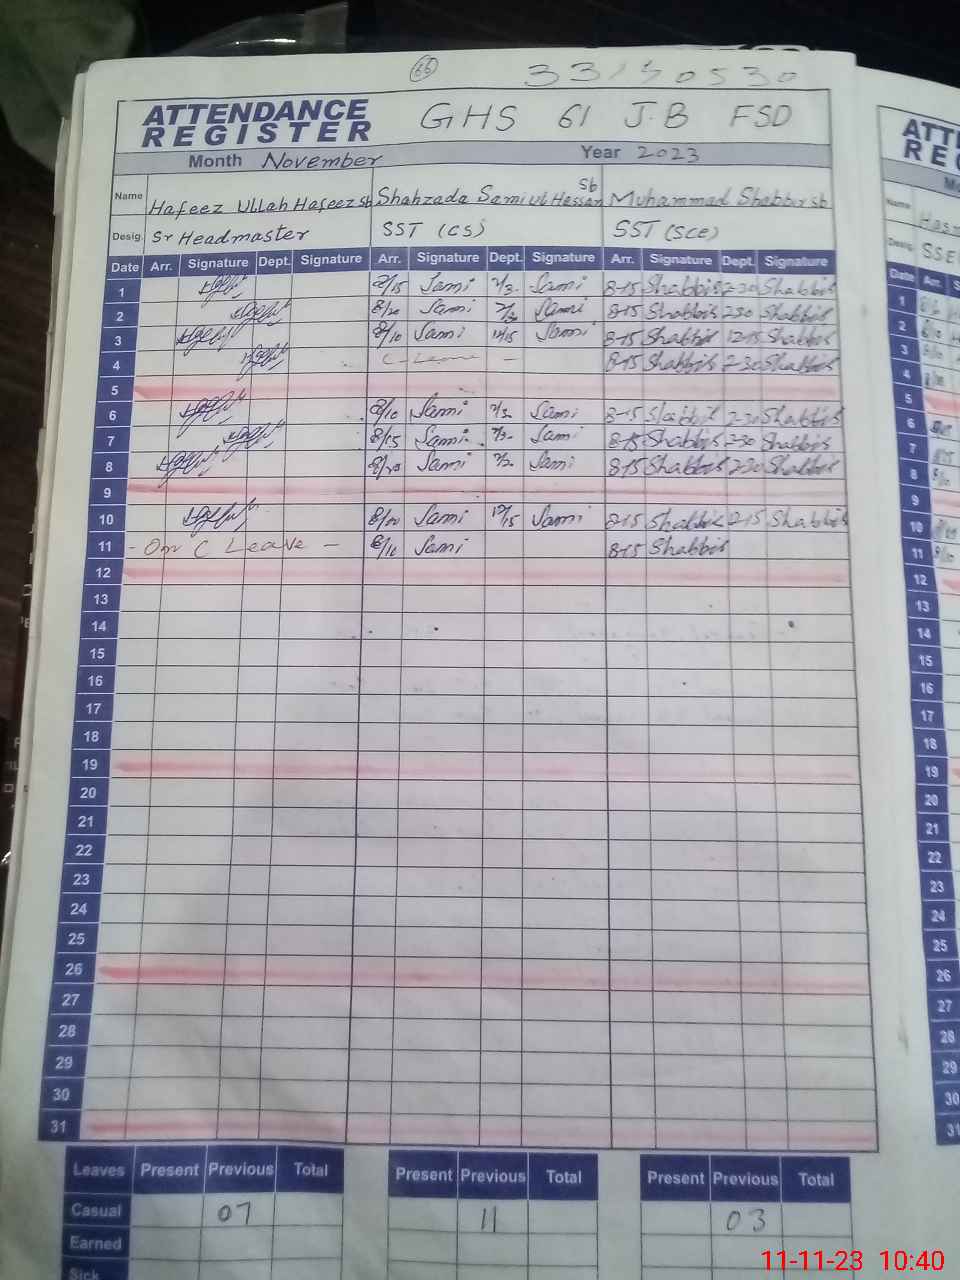 66 33130530
ATTENDANCE REGISTER GHS 61 J.B FSD
Month November Year 2023
Name Hafeez Ullah Hafeez sb Shahzada Sami ul Hassan sb Muhammad Shabbir sb
Desig. Sr Headmaster SST (CS) SST (Sce)
Date Arr. Signature Dept. Signature Arr. Signature Dept. Signature Arr. Signature Dept. Signature
1 8/15 Sami 2/3. Sami 8-15 Shabbir 2-30 Shabbir
2 8/20 Sami Sami 8-15 Shabbir 2-30 Shabbir
3 8/10 Sami 12/15 Sami 8-15 Shabbir 12-15 Shabbir
4 C-Leave - 8-15 Shabbir 2-30 Shabbir
5
6 8/10 Sami 2/3. Sami 8-15 Shabbir 2-30 Shabbir
7 8/15 Sami 2/3. Sami 8-15 Shabbir 2-30 Shabbir
8 Sami Sami 8-15 Shabbir 2-30 Shabbir
9
10 Sami 12/15 Sami 8-15 Shabbir Shabbir
11 - On C Leave - 8/10 Sami 8-15 Shabbir
12
13
14
15
16
17
18
19
20
21
22
23
24
25
26
27
28
29
30
31
Leaves Present Previous Total Present Previous Total Present Previous Total
Casual 07 11 03
Earned
Sick
11-11-23 10:40